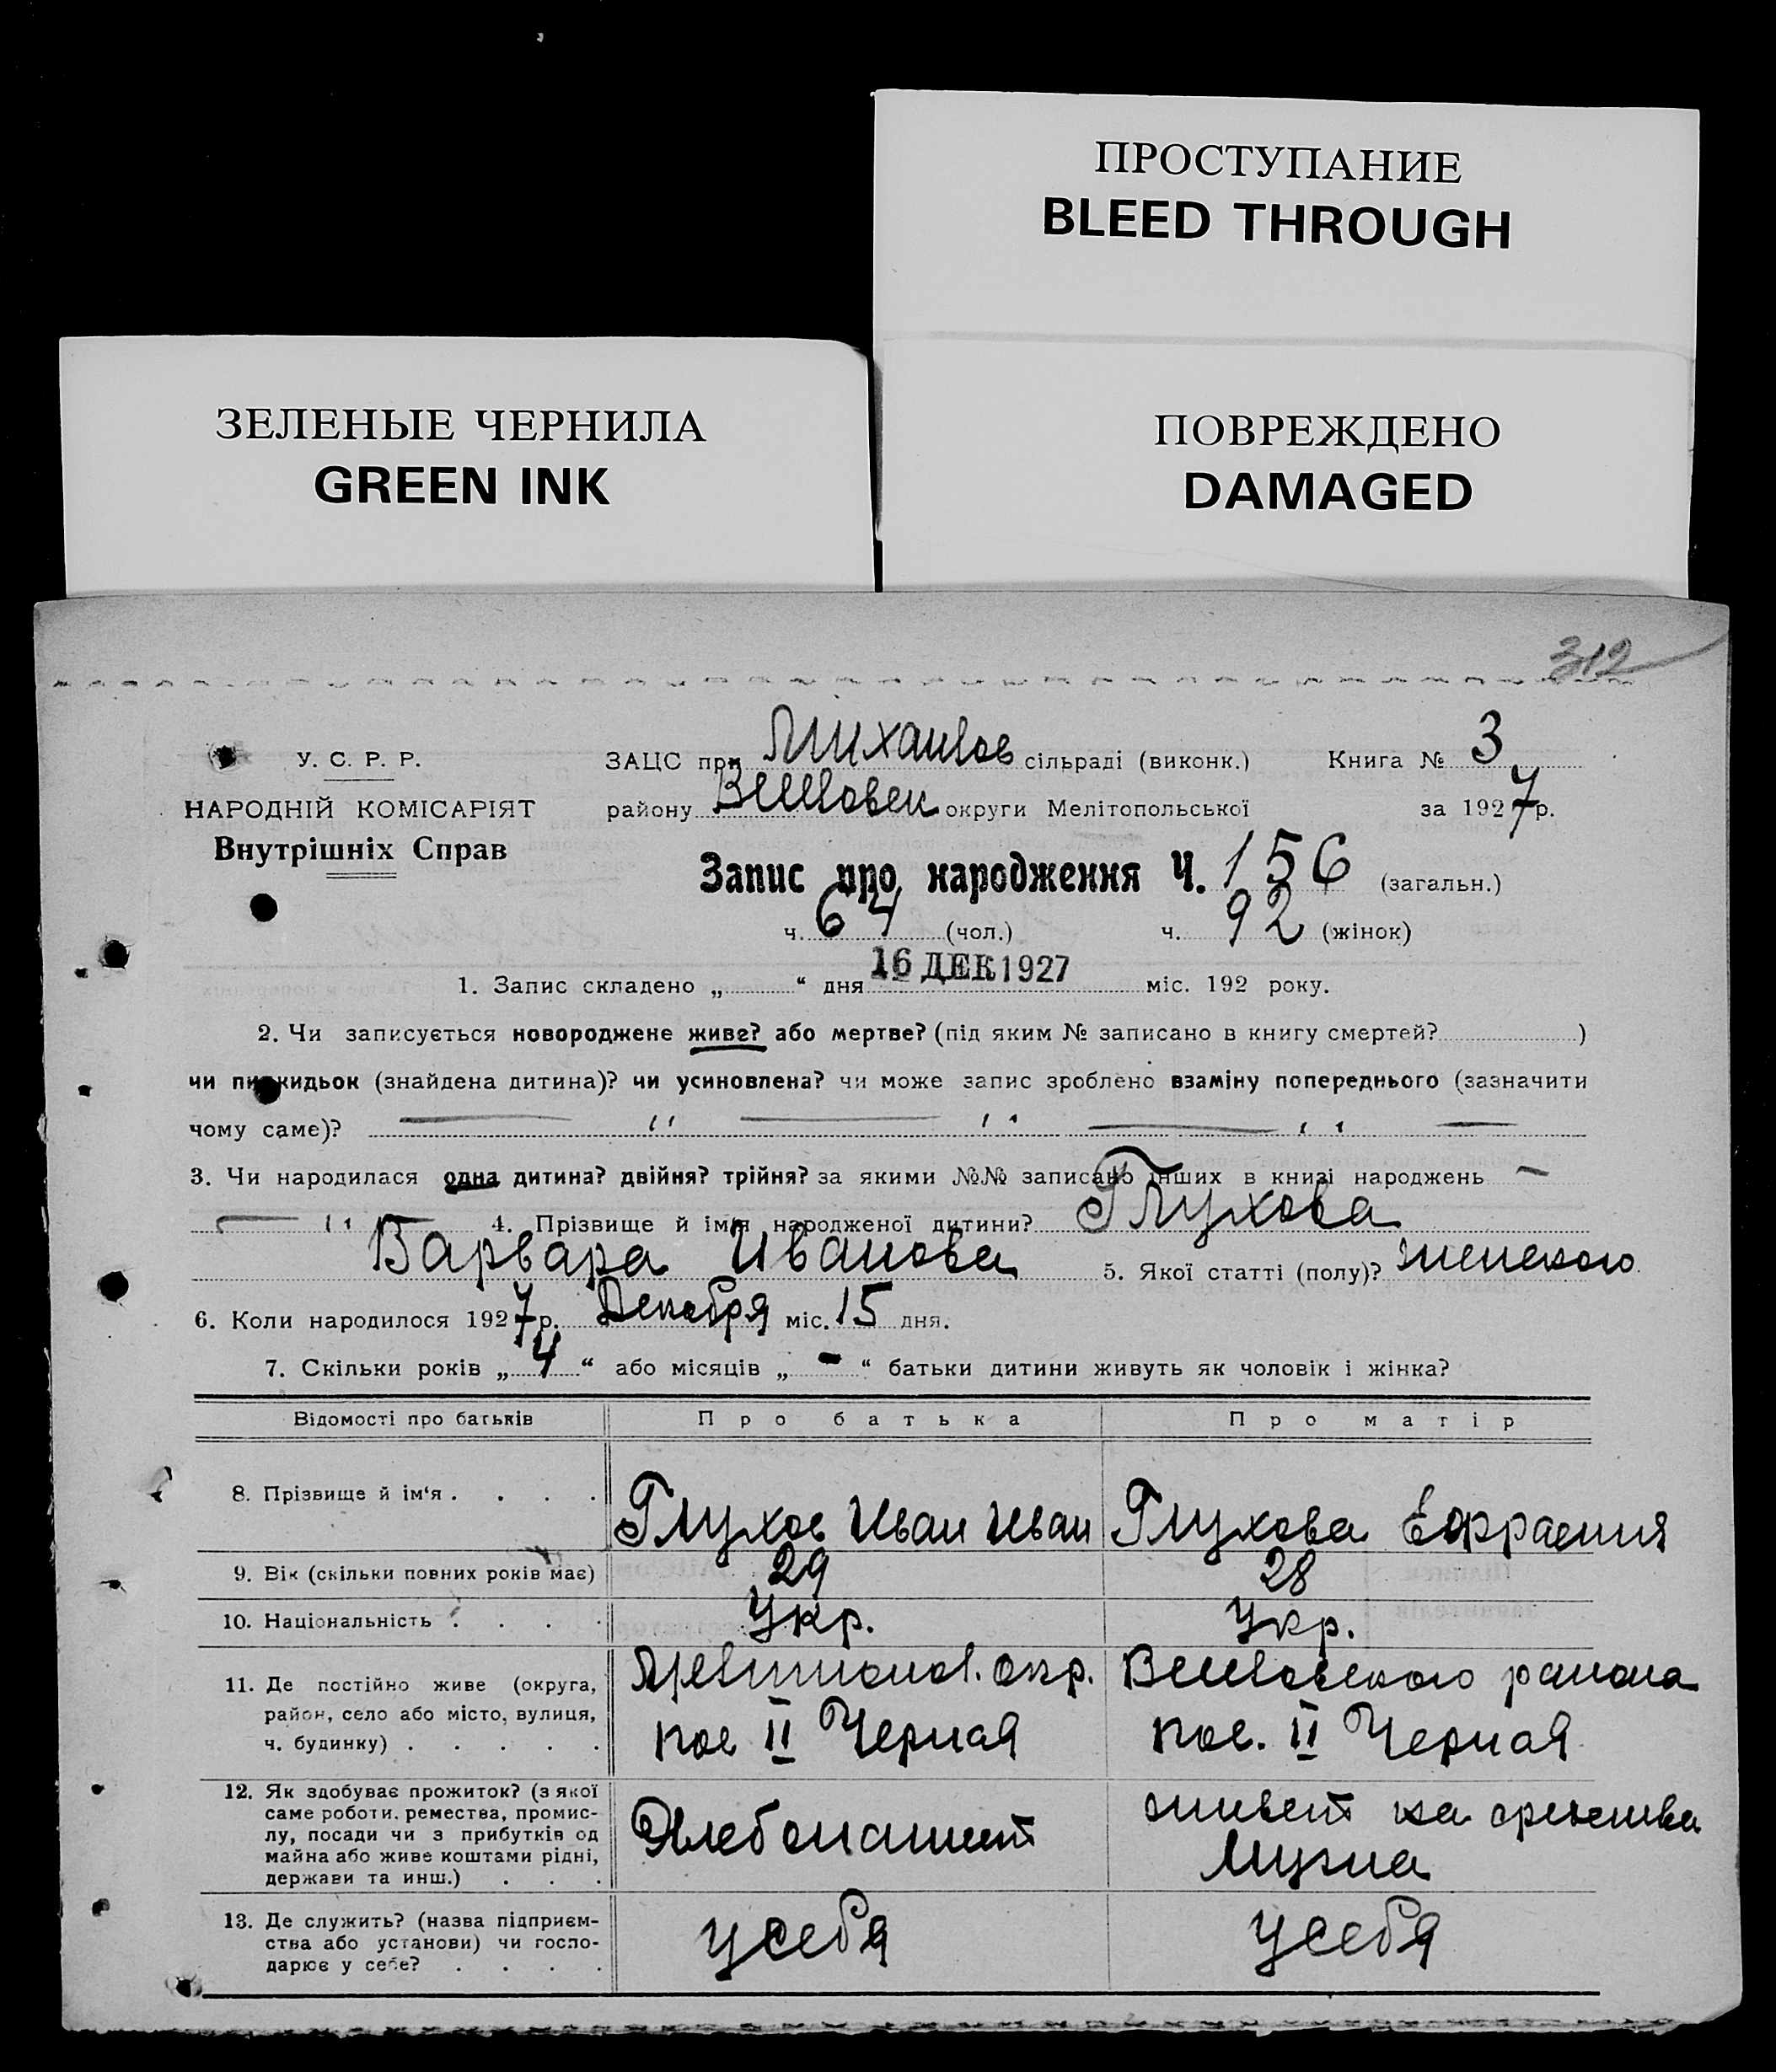 ПРОСТУПАНИЕ
BLEED THROUGH
ЗЕЛЕНЫЕ ЧЕРНИЛА
GREEN INK
ПОВРЕЖДЕНО
DAMAGED
312
У. С. Р. Р.
НАРОДНІЙ КОМІСАРІЯТ
Внутрішніх Справ
ЗАЦС при Михайлов сільраді (виконк.)
району округи Мелітопольської
Книга № 3
за 1927 р.
Запис про народження Ч. 156 (загальн.)
ч. 64 (чол.) ч. 92 (жінок)
1. Запис складено „ “ дня 16 ДЕК 1927 міс. 192 року.
2. Чи записується новороджене живе? або мертве? (під яким № записано в книгу смертей? )
чи підкидьок (знайдена дитина)? чи усиновлена? чи може запис зроблено взаміну попереднього (зазначити
чому саме)? — " — " — " —
3. Чи народилася одна дитина? двійня? трійня? за якими №№ записано інших в книзі народжень —
— " — 4. Прізвище й ім'я народженої дитини? Глухова
Варвара Иванова 5. Якої статті (полу)? женского
6. Коли народилося 1927 р. Декабря міс. 15 дня.
7. Скільки років „ 4 “ або місяців „ - “ батьки дитини живуть як чоловік і жінка?
Відомості про батьків Про батька Про матір
8. Прізвище й ім'я . . . . Глухов Иван Иван Глухова Ефрасния
9. Вік (скільки повних років має) 29 28
10. Національність . . . . Укр. Укр.
11. Де постійно живе (округа,
район, село або місто, вулиця,
ч. будинку) . . . . .
Мелитопол. окр.
пос II Черная
района
пос. II Черная
12. Як здобуває прожиток? (з якої
саме роботи, ремества, промис-
лу, посади чи з прибутків од
майна або живе коштами рідні,
держави та инш.) . . .
Хлебопашест
живет на средства
Мужа
13. Де служить? (назва підприєм-
ства або установи) чи госпо-
дарює у себе? . . . .
у себя
у себя